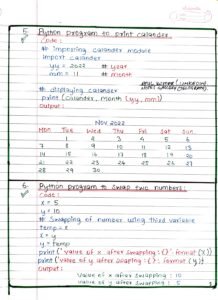 5. Python program to print calander
Code :
# Importing calander module
import calander
yy = 2022 # year
mm = 11 # month
# displaying calander
print (calander. month (yy, mm))
Output :
Nov 2022
Mon Tue Wed Thu Fri Sat Sun
1 2 3 4 5 6
7 8 9 10 11 12 13
14 15 16 17 18 19 20
21 22 23 24 25 26 27
28 29 30
6. Python program to swap two numbers :
Code :
x = 5
y = 10
# Swapping of number using third variable
temp = x
x = y
y = temp
print ('value of x after swapping : {}'. format (x))
print ('value of y after swaping : {}'. format (y))
Output :
Value of x after swapping : 10
Value of y after swapping : 5